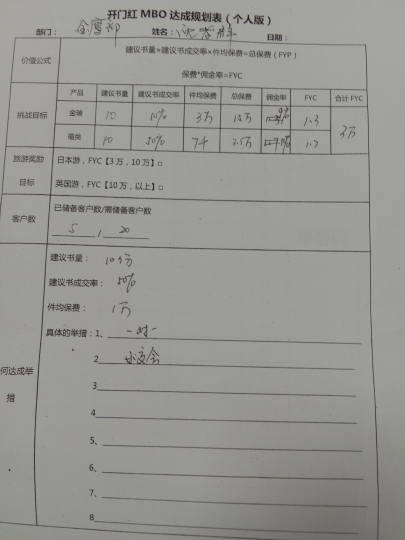 开门红 MBO 达成规划表（个人版）
部门： 姓名： 日期：
价值公式 建议书量*建议书成交率*件均保费=总保费（FYP）
保费*佣金率=FYC
挑战目标 产品 建议书量 建议书成交率 件均保费 总保费 佣金率 FYC 合计 FYC
金瑞 10 10% 3万 1.3 3万
福类 10 50% 7千 1.7
旅游奖励目标 日本游，FYC【3 万，10 万】□
英国游，FYC【10 万，以上】□
客户数 已储备客户数/需储备客户数
5 / 20
何达成举措 建议书量： 10份
建议书成交率： 50%
件均保费： 1万
具体的举措：1、 一对一
2 酒会
3
4
5、
6、
7、
8